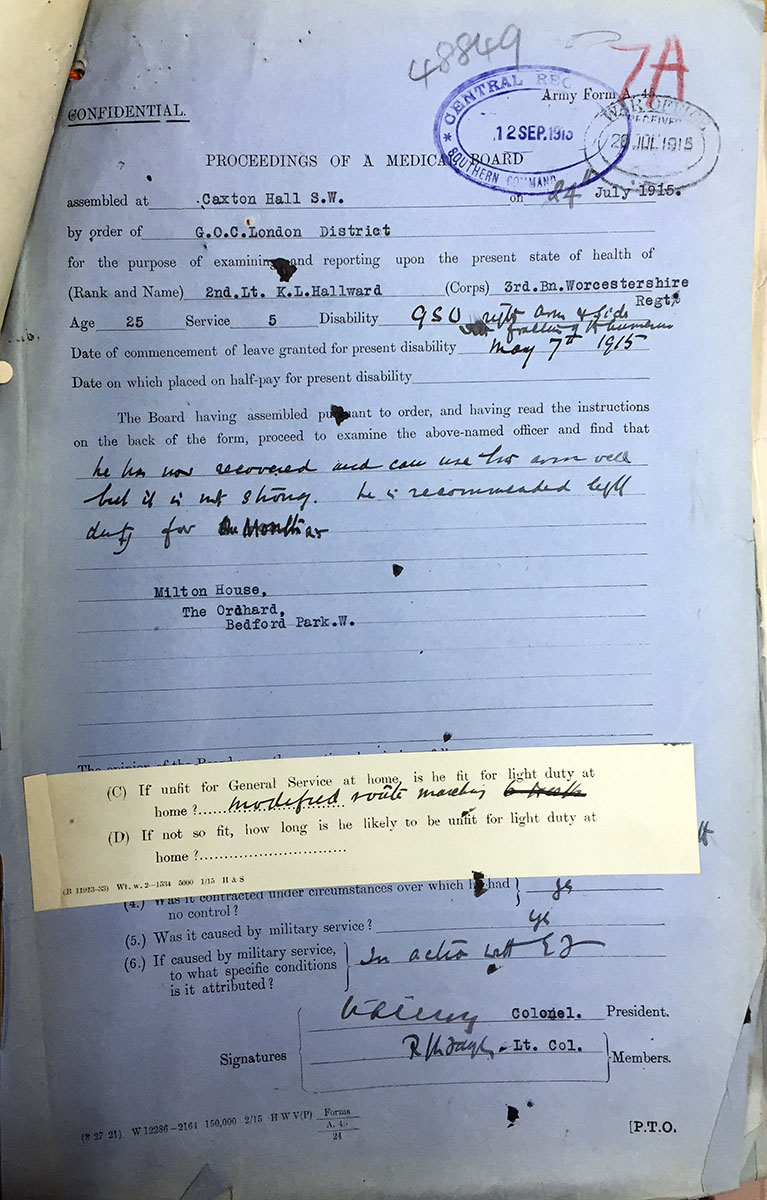 48849
7A
CONFIDENTIAL.
Army Form A. 45.
CENTRAL REC
12 SEP. 1915
SOUTHERN COMMAND
WAR OFFICE
RECEIVED
26 JUL 1915
PROCEEDINGS OF A MEDICAL BOARD
assembled at Caxton Hall S.W. on 24th July 1915.
by order of G.O.C.London District
for the purpose of examining and reporting upon the present state of health of
(Rank and Name) 2nd.Lt. K.L.Hallward (Corps) 3rd.Bn.Worcestershire
Regt.
Age 25 Service 5 Disability GSW right arm & side
fracture of humerus
Date of commencement of leave granted for present disability May 7th 1915
Date on which placed on half-pay for present disability
The Board having assembled pursuant to order, and having read the instructions
on the back of the form, proceed to examine the above-named officer and find that
he has now recovered and can use his arm well
but it is not strong. He is recommended light
duty for
Milton House,
The Ordhard,
Bedford Park.W.
(C) If unfit for General Service at home, is he fit for light duty at
home ? modified route marching
(D) If not so fit, how long is he likely to be unfit for light duty at
home ?
(B 11923-33) Wt. w. 2—1534 5000 1/15 H & S
(4.) Was it contracted under circumstances over which he had
no control ? yes
(5.) Was it caused by military service ? yes
(6.) If caused by military service,
to what specific conditions
is it attributed ?
In action with E F
Colonel. President.
Signatures
Lt. Col. Members.
(B 27 21) W 12286—2164 150,000 2/15 H W V(P) Forms
A. 45
24
[P.T.O.